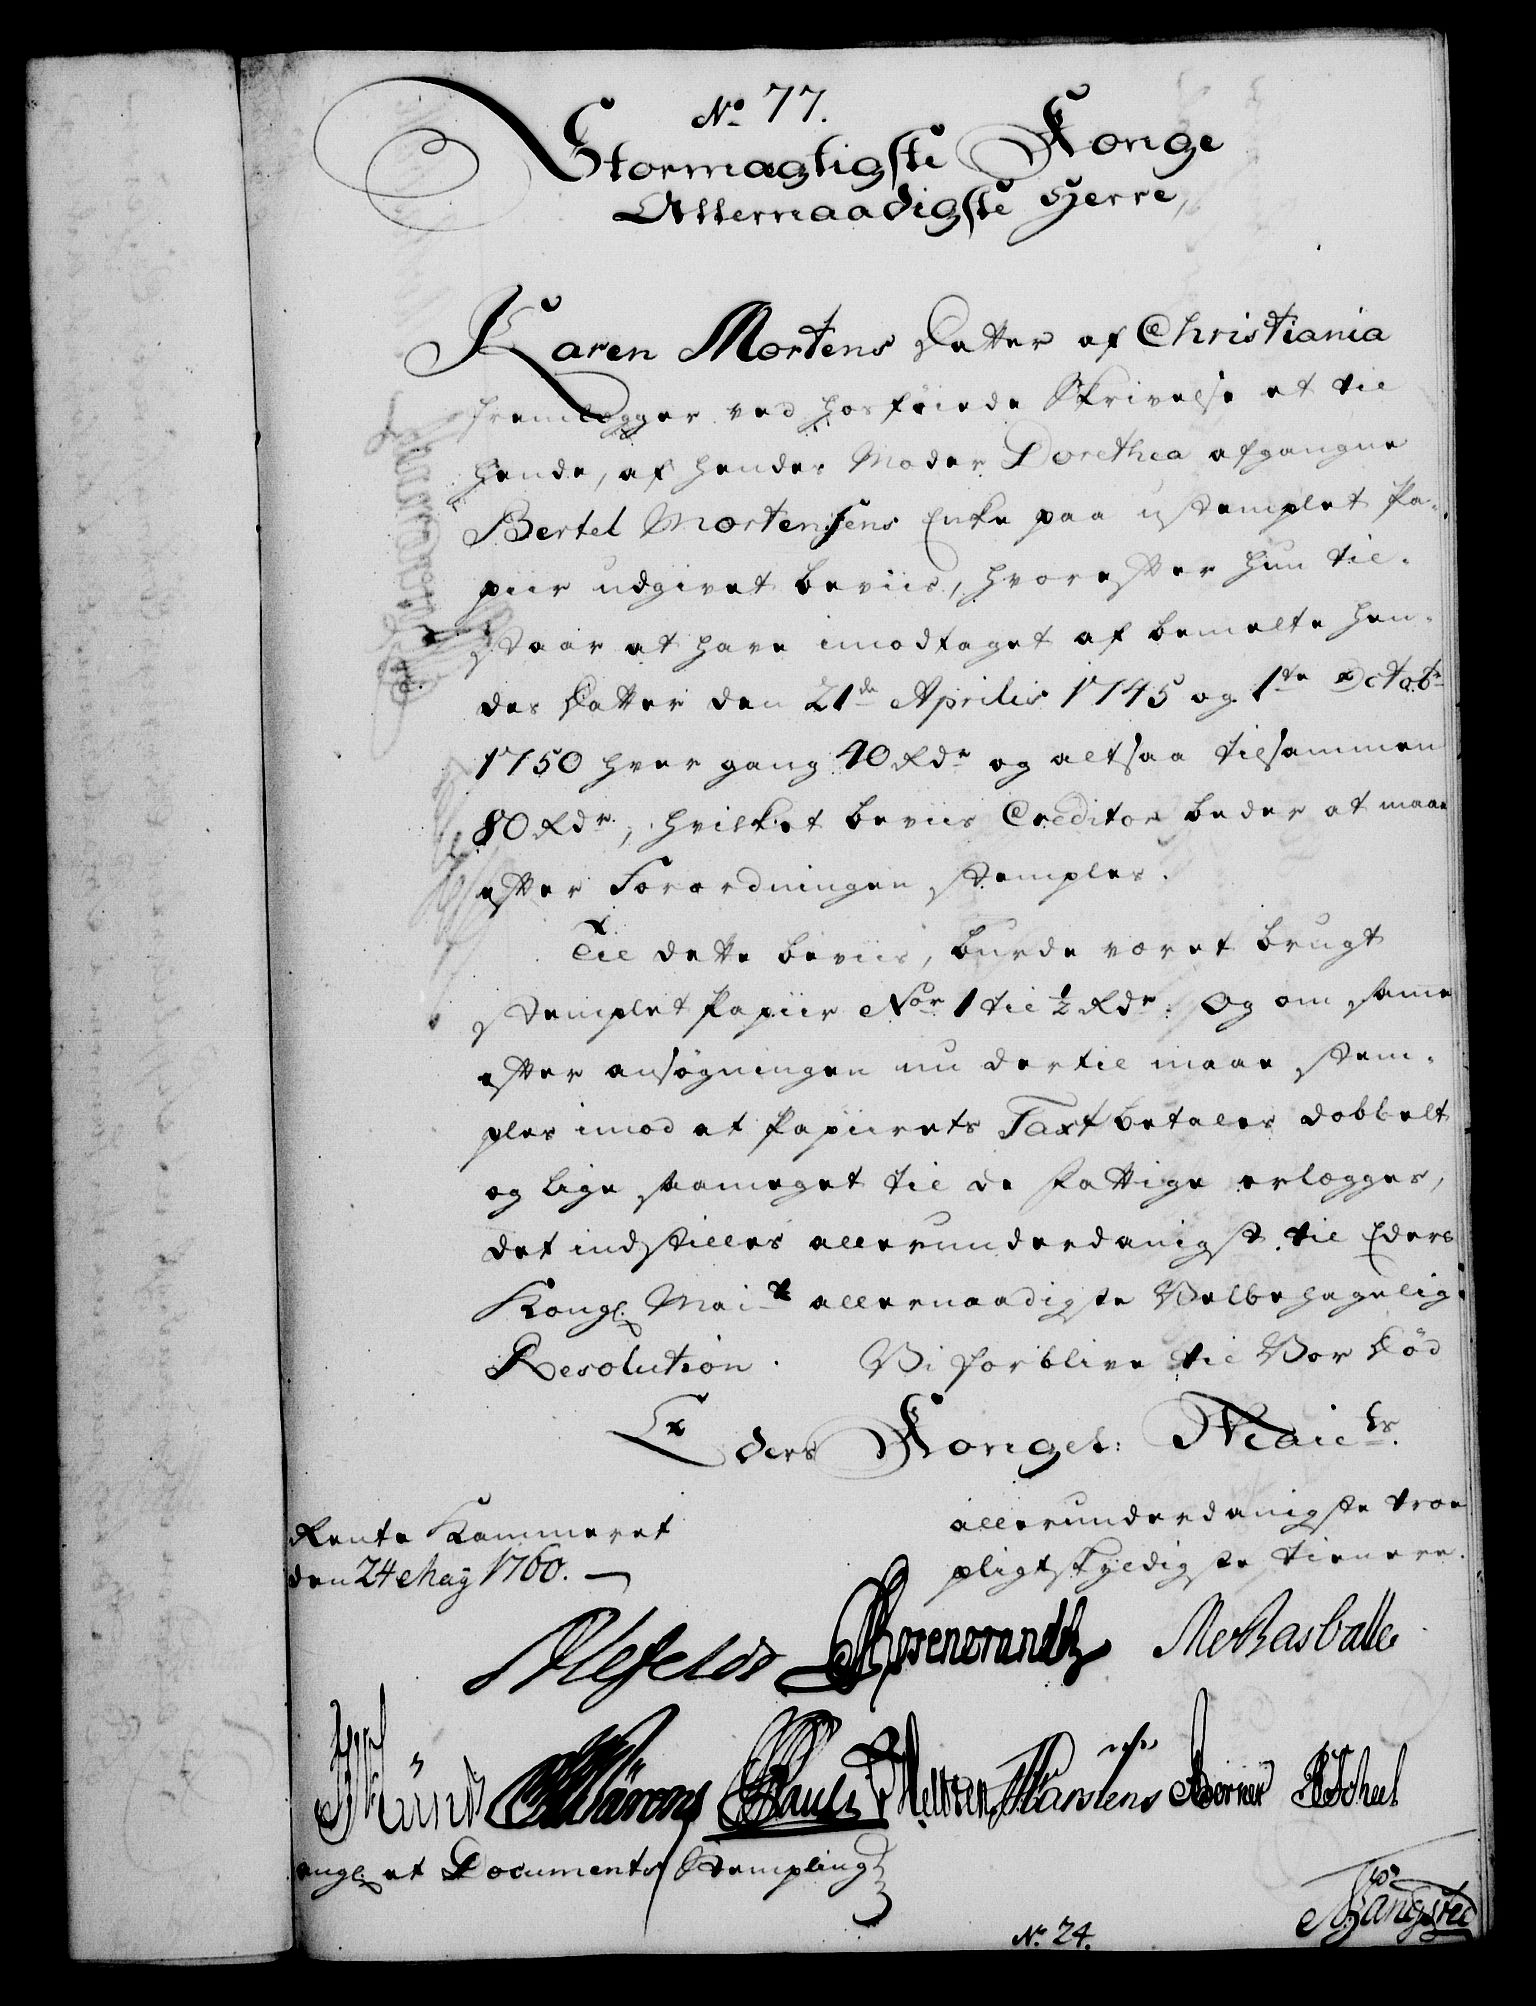 No 77.
Stormægtigste Konge
Allernaadigste Herre,
Karen Mortens Datter af Christiania
fremlegger ved hosføiede Skrivelse et til
hende, af hendes Moder Dorethea afgangne
Bertel Mortensens Enke paa ustemplet Pa-
piir udgivet beviis, hvorefter hun til-
staar at have imodtaget af bemelte hen-
des Datter den 21de Aprilis 1745 og 1te Octobr
1750 hver gang 40 Rdr og altsaa tilsammen
80 Rdr, hvilket beviis Creditor beder at maae
efter Forordningen stemples.
Til dette beviis, burde været brugt
stemplet Papiir Nor 1 til ½ Rdr. Og om same
efter ansøgningen nu dertil maae stem-
ples imod at Papiirets Taxt betales dobbelt
og lige saameget til de fattige erlægges,
det indstilles allerunderdanigst til Eders
Kongl. Mait allernaadigste Velbehagelig
Resolution. Vi forblive til Vor Død
Eders Kongel: Maits.
Rente Kammeret
den 24 May 1760.
allerunderdanigste troe
pligtskyldigste tienere.
Ahlefeldt Rosencrandtz
Pauli Karstens Berner Scheel
angl. et Documents Stempling
No 24.